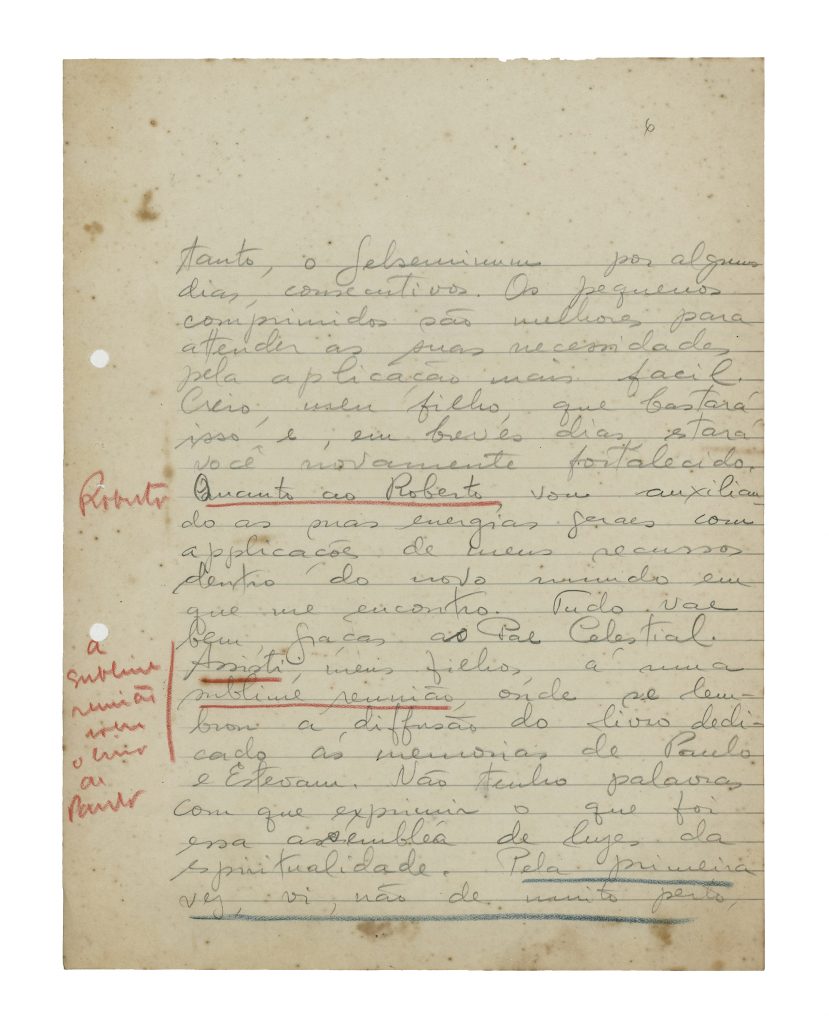 6
tanto, o Gelseminum por alguns
dias, consecutivos. Os pequenos
comprimidos são melhores para
attender as suas necessidades
pela aplicação mais facil.
Creio, meu filho, que bastará
isso e, em breves dias, estará
você novamente fortalecido.
Roberto
Quanto ao Roberto, vou auxilian-
do as suas energias geraes com
applicações de meus recursos
dentro do novo mundo em
que me encontro. Tudo vae
bem, graças ao Pae Celestial.
a
sublime
reunião
o livro
de
Paulo
Assisti, meus filhos, á uma
sublime reunião, onde se lem-
brou a diffusão do livro dedi-
cado ás memorias de Paulo
e Estevam. Não tenho palavras
com que exprimir o que foi
essa assembléa de luzes da
espiritualidade. Pela primeira
vez, vi, não de muito perto,